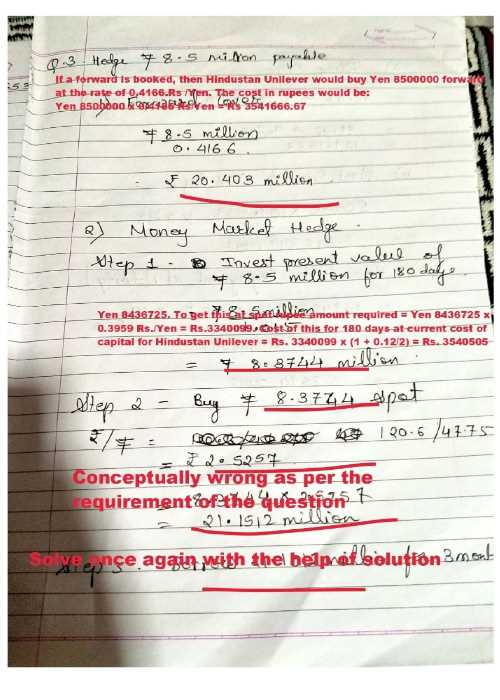 Q.3 Hedge ¥ 8.5 million payable
If a forward is booked, then Hindustan Unilever would buy Yen 8500000 forward
at the rate of 0.4166.Rs /Yen. The cost in rupees would be:
1) Forward Cover
Yen 8500000 x 0.4166 Rs/Yen = Rs 3541666.67
¥ 8.5 million
0.4166
₹ 20.403 million
2) Money Market Hedge
Step 1 - Invest present value of
¥ 8.5 million for 180 days.
¥ 8.5 million
Yen 8436725. To get this at spot rupee amount required = Yen 8436725 x
0.3959 Rs./Yen = Rs.3340099. Cost of this for 180 days at current cost of
capital for Hindustan Unilever = Rs. 3340099 x (1 + 0.12/2) = Rs. 3540505
= ¥ 8.3744 million
Step 2 - Buy ¥ 8.3744 spot
₹/¥ = 120.6/47.75
= ₹ 2.5257
Conceptually wrong as per the
requirement of the question
= 8.3744 x 2.5257
= 21.1512 million
Solve once again with the help of solution
Step 3 - for 3 mont